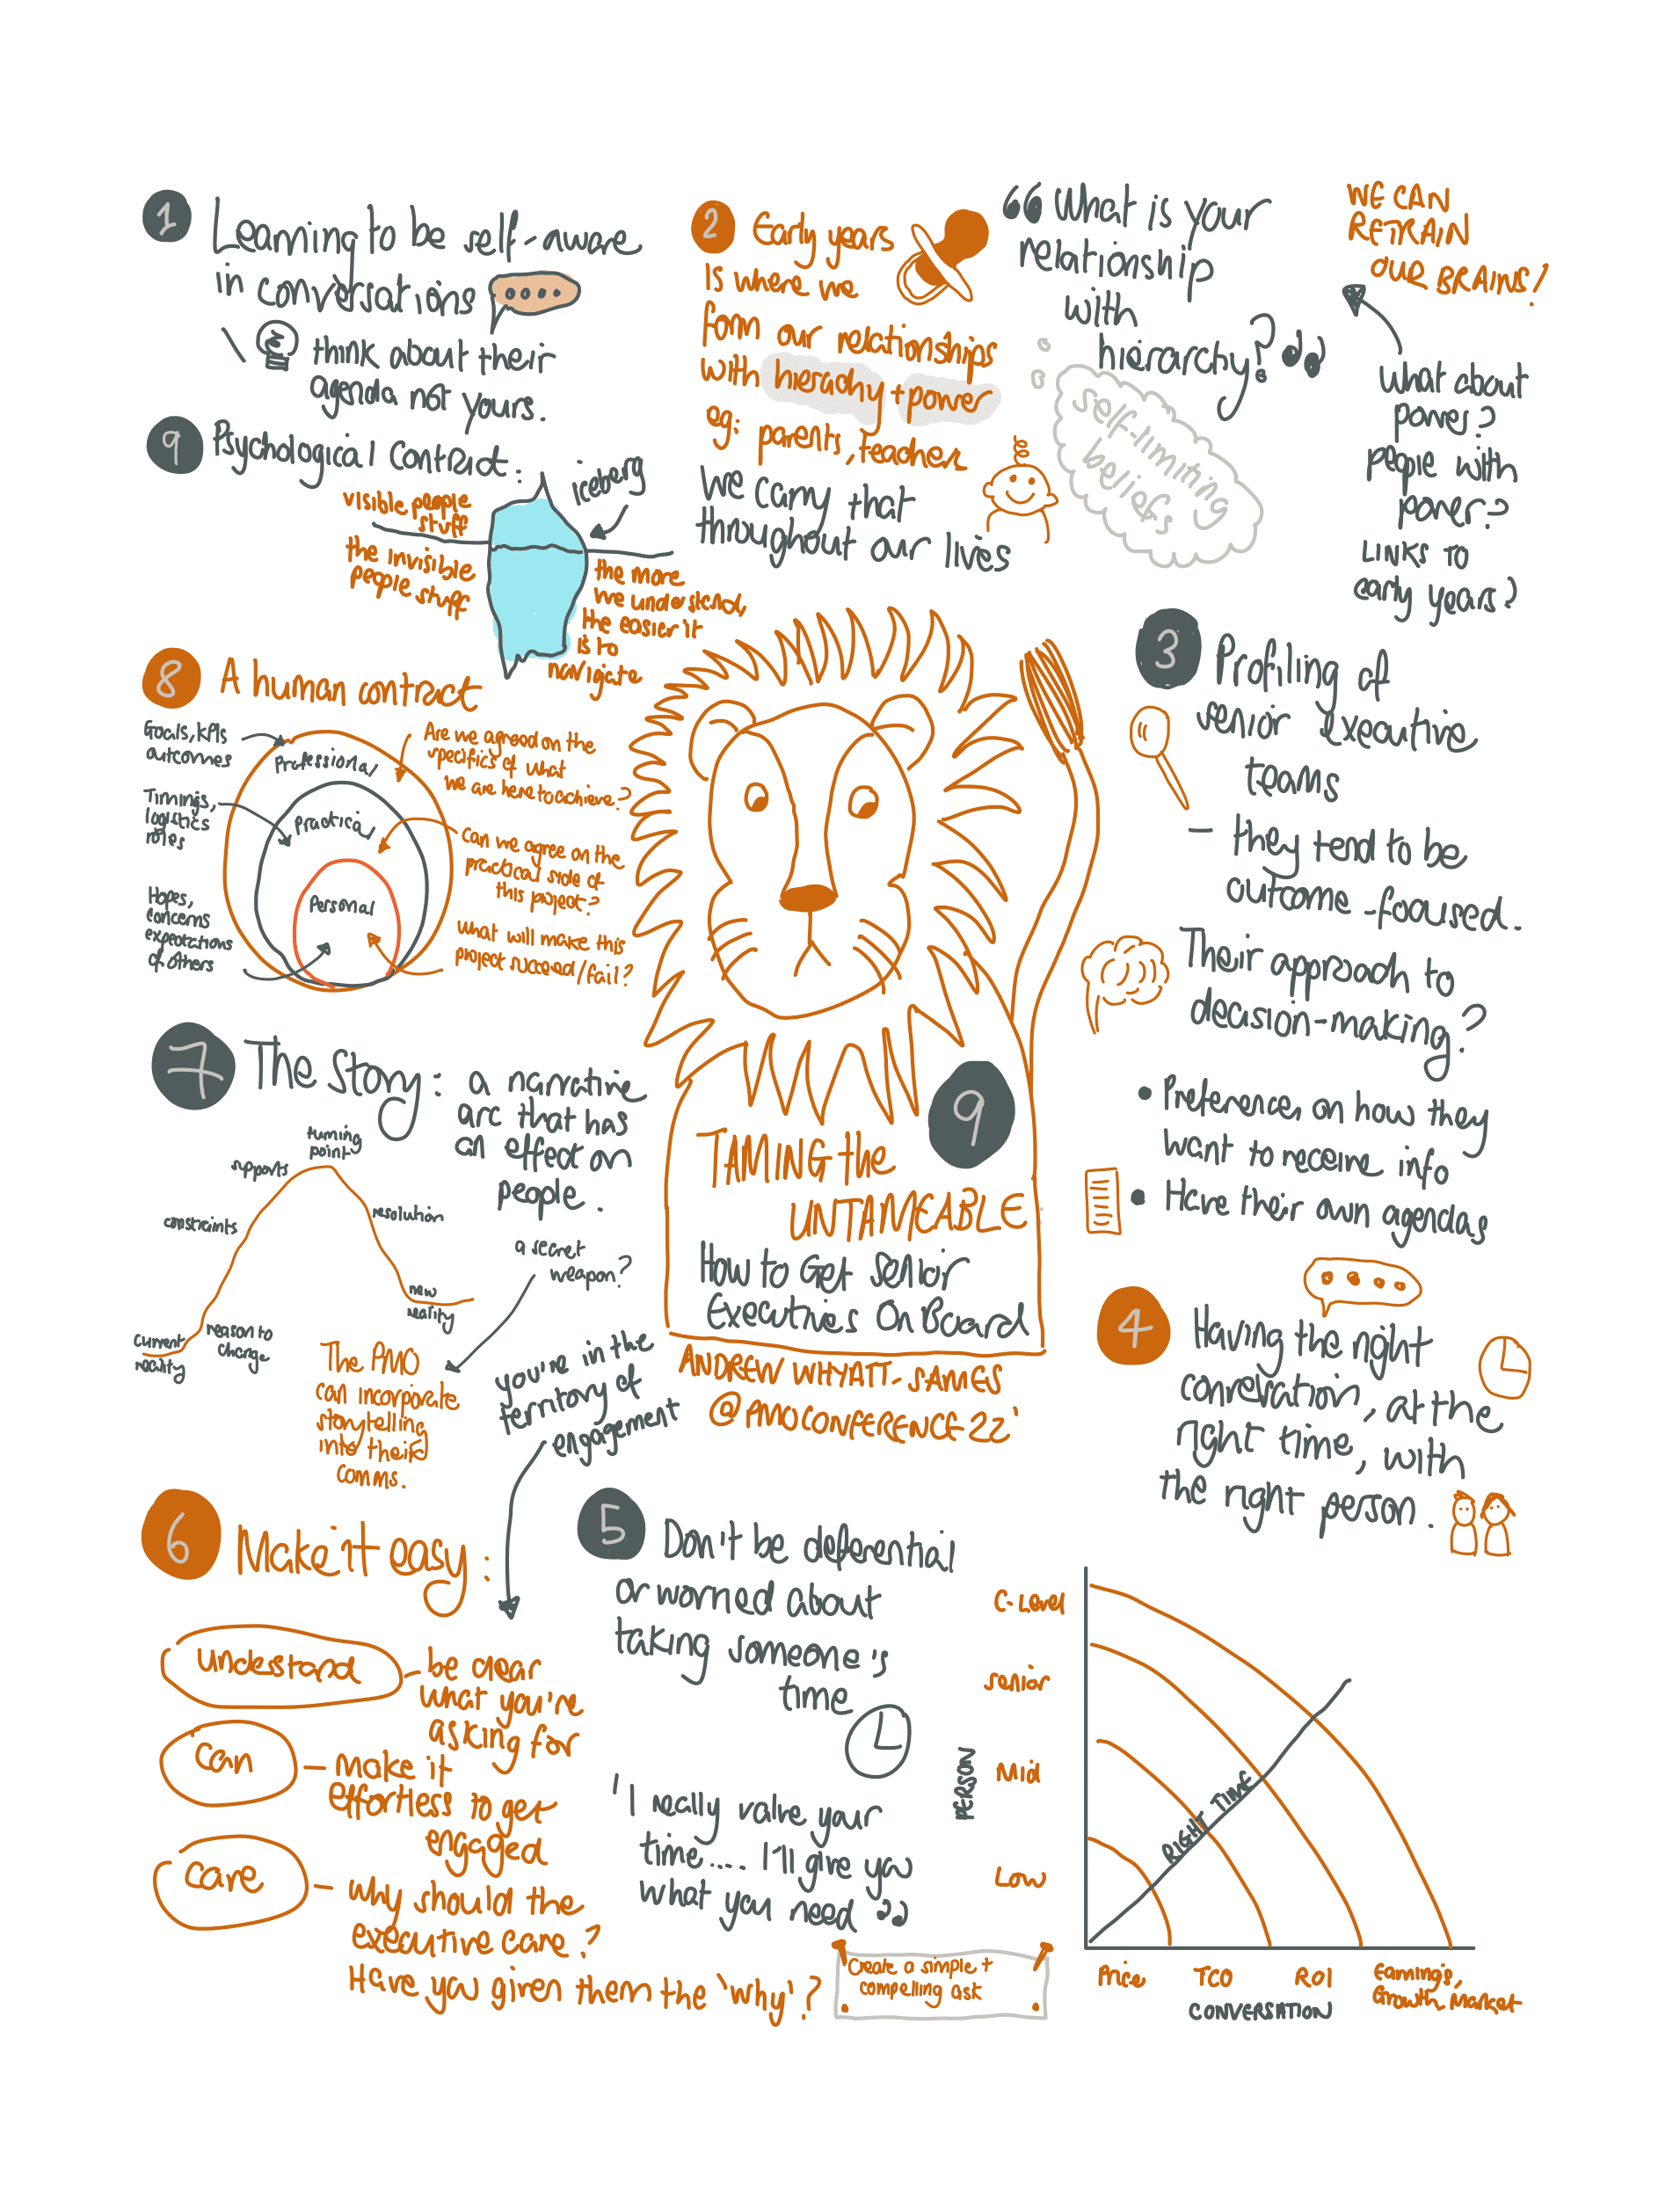 1
Learning to be self-aware
in conversations
think about their
agenda not yours.
2
Early years
is where we
form our relationships
with hierachy + power
eg: parents, teachers
We carry that
throughout our lives
“What is your
relationship
with
hierarchy?”
self-limiting
beliefs
WE CAN
RETRAIN
OUR BRAINS!
What about
power?
people with
power?
LINKS TO
early years?
9
Psychological Contract:
iceberg
visible people
stuff
the invisible
people stuff
the more
we understand,
the easier it
is to
navigate
8
A human contract
Goals, KPIs
outcomes
Timings,
logistics
roles
Hopes,
concerns
expectations
of others
Professional
Practical
Personal
Are we agreed on the
specifics of what
we are here to achieve?
Can we agree on the
practical side of
this project?
What will make this
project succeed/fail?
3
Profiling of
senior executive
teams
– they tend to be
outcome-focused.
Their approach to
decision-making?
• Preferences on how they
want to receive info
• Have their own agendas
7
The Story: a narrative
arc that has
an effect on
people.
turning
point
supports
constraints
resolution
new
reality
current
reality
reason to
change
a secret
weapon?
The PMO
can incorporate
storytelling
into their
comms.
9
TAMING the
UNTAMEABLE
How to Get Senior
Executives On Board
ANDREW WHYATT-SAMES
@PMOCONFERENCE22
4
Having the right
conversation, at the
right time, with
the right person.
you're in the
territory of
engagement
6
Make it easy:
understand
– be clear
what you're
asking for
can
– make it
effortless to get
engaged
care
– why should the
executive care?
Have you given them the 'why'?
5
Don't be deferential
or worried about
taking someone's
time
'I really value your
time.... I'll give you
what you need”
Create a simple +
compelling ask
PERSON
C-Level
Senior
Mid
Low
RIGHT TIME
Price
TCO
ROI
Earnings,
Growth, Market
CONVERSATION